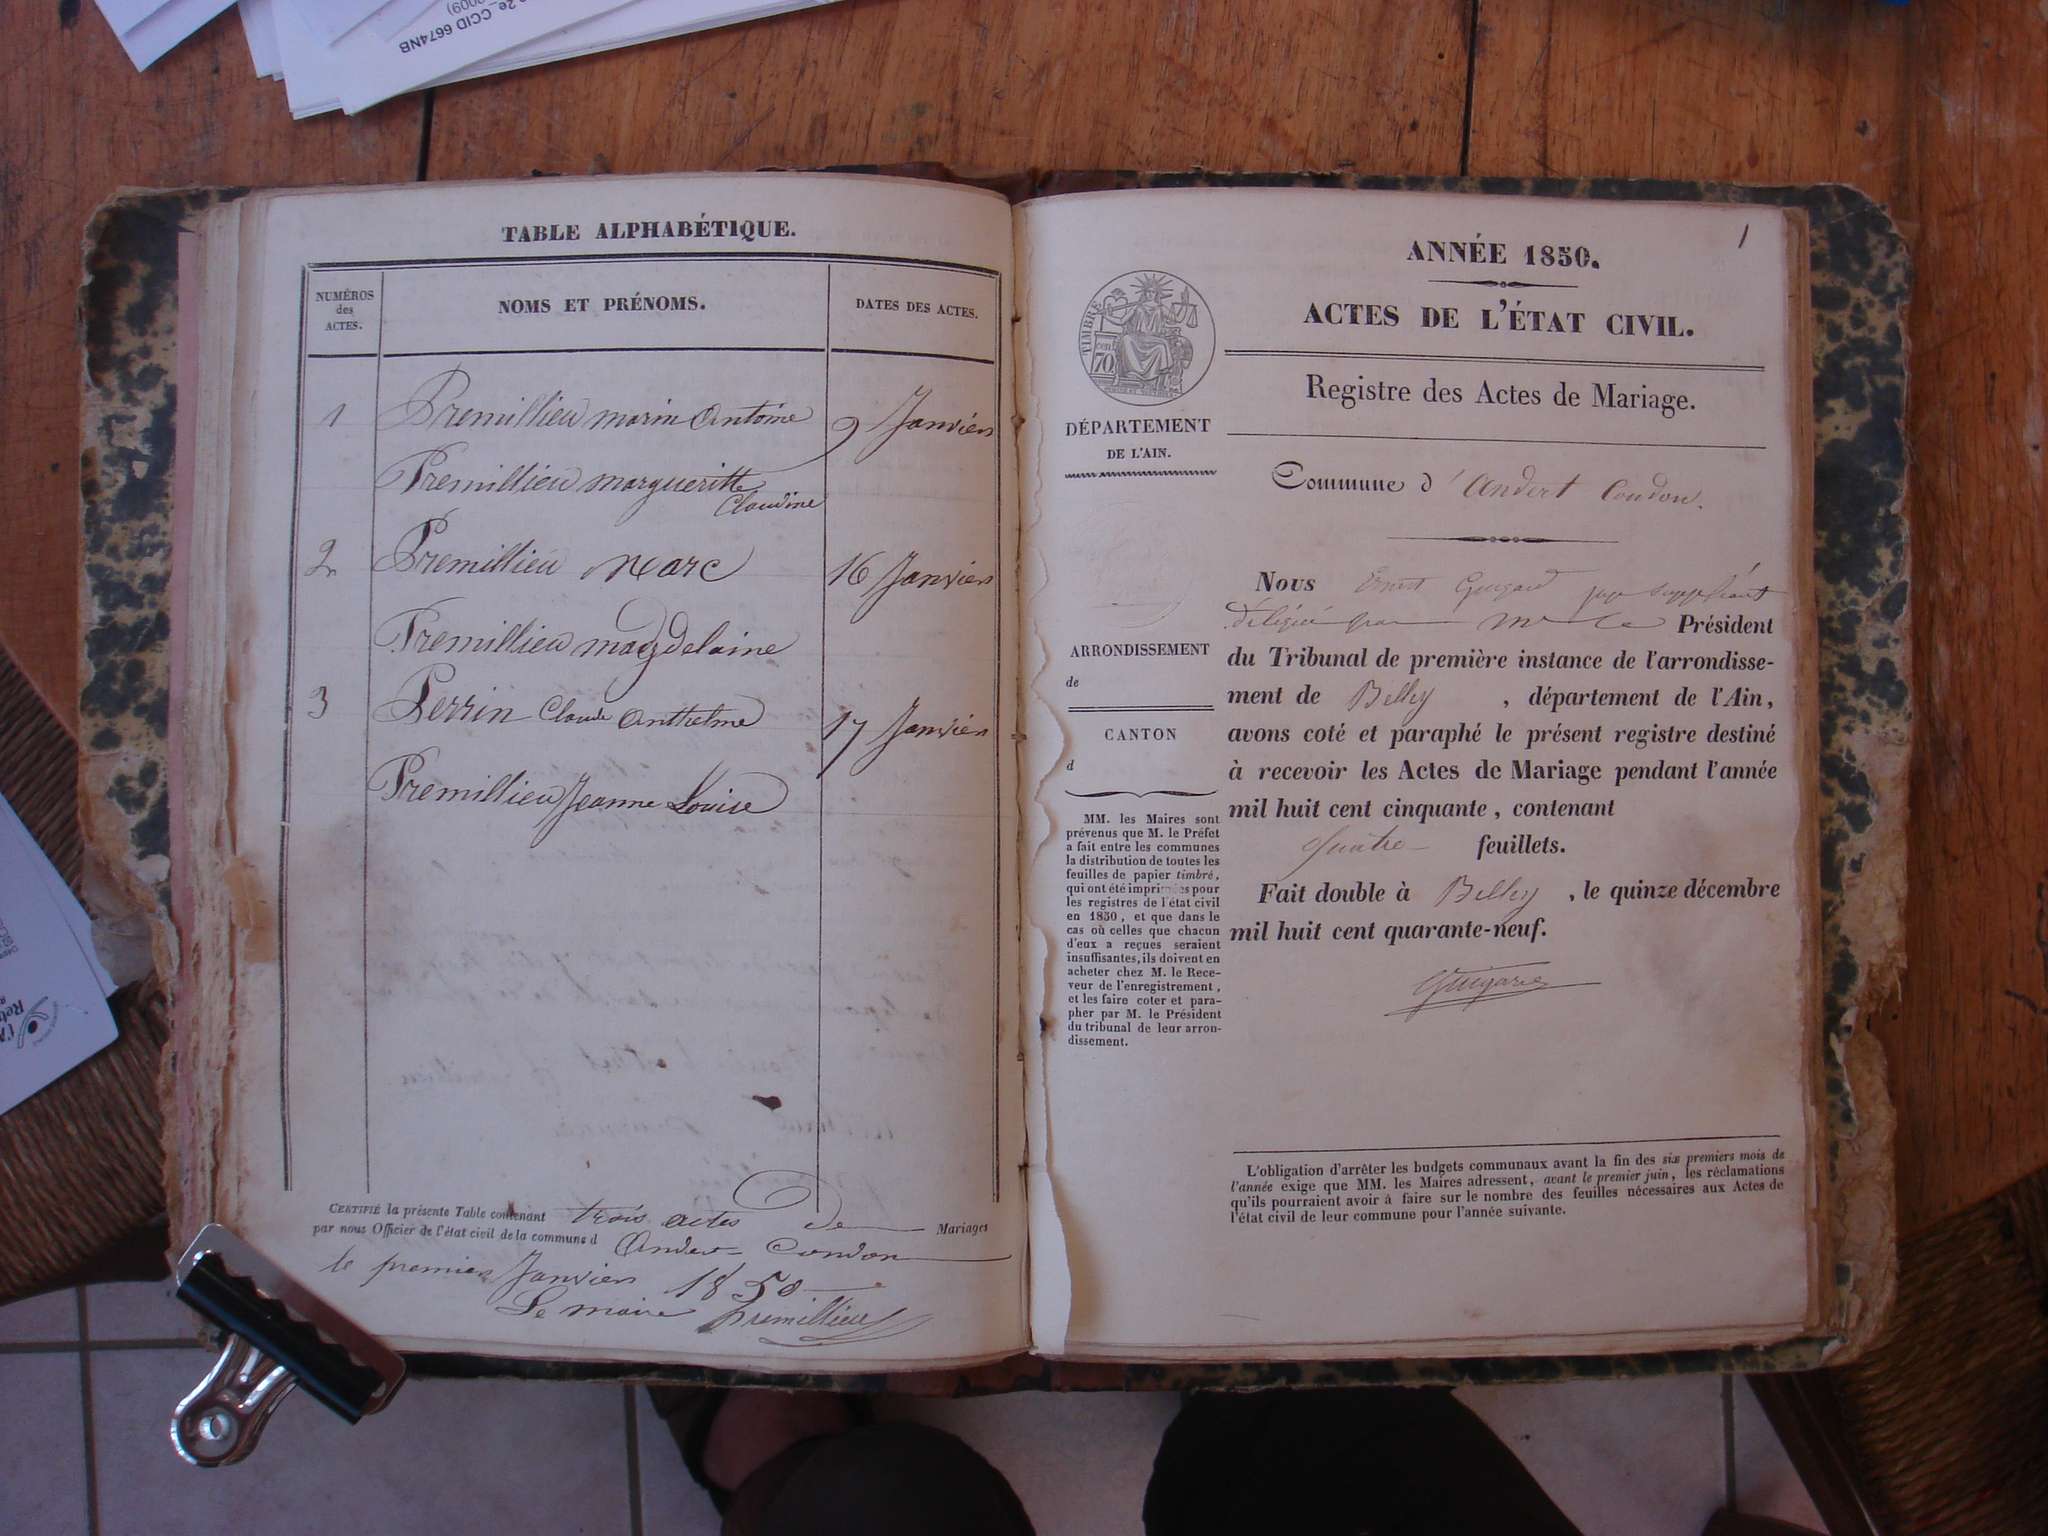 2e_CCID 6674NB
2009)
TABLE ALPHABÉTIQUE.
NUMÉROS
des
ACTES.
NOMS ET PRÉNOMS.
DATES DES ACTES.
1 Premillieu marin Antoine 9 Janvier
Premillieu margueritte
Claudine
2 Premillieu Marc 16 Janvier
Premillieu magdelaine
3 Perrin Claude Anthelme 17 Janvier
Premillieu Jeanne Louise
CERTIFIÉ la présente Table contenant trois actes De Mariages
par nous Officier de l'état civil de la commune d Andert Condon
le premier Janvier 1850
Le maire Premillieu
1
ANNÉE 1850.
ACTES DE L'ÉTAT CIVIL.
Registre des Actes de Mariage.
Commune d'Andert Condon.
TIMBRE
cen
70
DÉPARTEMENT
DE L'AIN.
ARRONDISSEMENT
de
CANTON
d
MM. les Maires sont
prévenus que M. le Préfet
a fait entre les communes
la distribution de toutes les
feuilles de papier timbré,
qui ont été imprimées pour
les registres de l'état civil
en 1850, et que dans le
cas où celles que chacun
d'eux a reçues seraient
insuffisantes, ils doivent en
acheter chez M. le Rece-
veur de l'enregistrement,
et les faire coter et para-
pher par M. le Président
du tribunal de leur arron-
dissement.
Nous Ernest Guigard juge suppléant
délégué par Mr le Président
du Tribunal de première instance de l'arrondisse-
ment de Belley, département de l'Ain,
avons coté et paraphé le présent registre destiné
à recevoir les Actes de Mariage pendant l'année
mil huit cent cinquante, contenant
quatre feuillets.
Fait double à Belley, le quinze décembre
mil huit cent quarante-neuf.
Guigard
L'obligation d'arrêter les budgets communaux avant la fin des six premiers mois de
l'année exige que MM. les Maires adressent, avant le premier juin, les réclamations
qu'ils pourraient avoir à faire sur le nombre des feuilles nécessaires aux Actes de
l'état civil de leur commune pour l'année suivante.